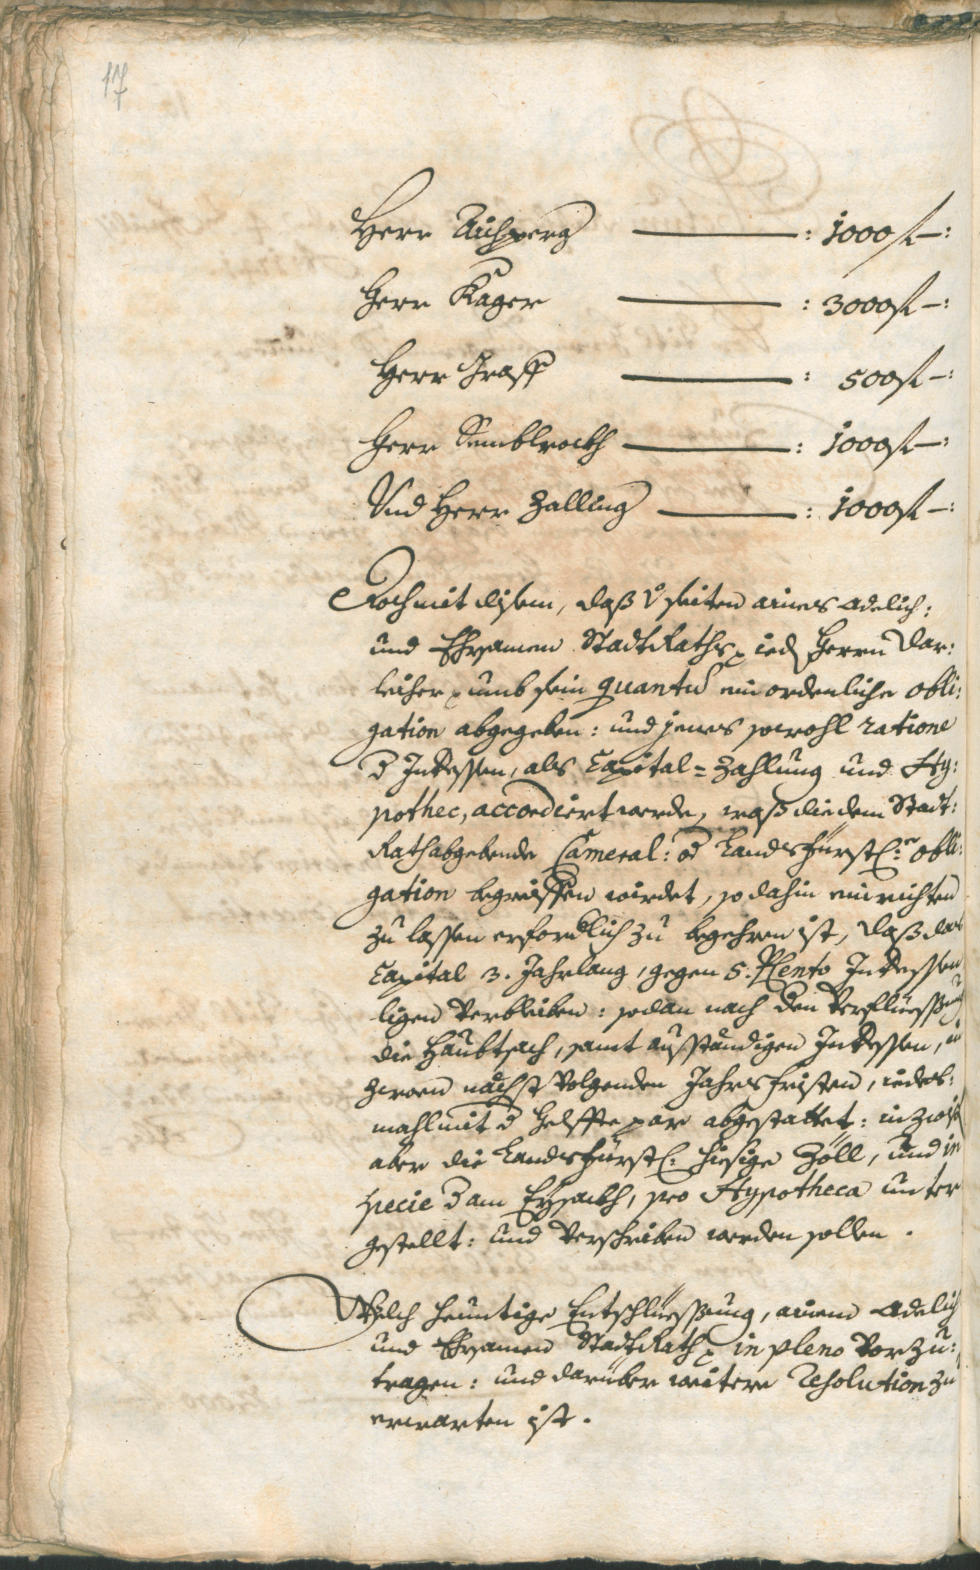 17
Herr Aichperg ——— : 1000 fl —:
Herr Kager ——— : 3000 fl —:
Herr Graff ——— : 500 fl —:
Herr Semblrockh ——— : 1000 fl —:
Vnd Herr Zalling ——— : 1000 fl —:
Doch mit disem, daß seiten aines adelich:
und Ehrsamen StadtRaths, ied Herrn Dar:
leiher, umb sein quantu ein ordenliche obli:
gation abgegeben: und jenes sowohl ratione
d Interessen, als Capital-Zahlung und Hy:
pothec, accordiert werde, waß die dem Stadt:
Rath abgebende Cameral: od Landsfürstl: obli:
gation begreiffen wirdet, so dahin einrichten
zu lassen erfordlich zu begehren ist, daß das
Capital 3. Jahr lang, gegen 5. PCento Interessen
ligen verbleiben: sodan nach den verfliessung
die Haubtsach, samt ausständigen Interessen, in
zwen nächst volgenden Jahrsfristen, iedes:
mahl mit d Helffte par abgestattet: inzwisch
aber die Landsfürstl: hiesige Zöll, und in
specie d am Eysackh, pro Hypotheca unter
gestellt: und verschriben werden sollen.
Welch heuntige Entschliessung, ainem Adelich
und Ehrsamen StadtRath in pleno vorzu:
tragen: und darüber weitere Resolution zu
erwarten ist.